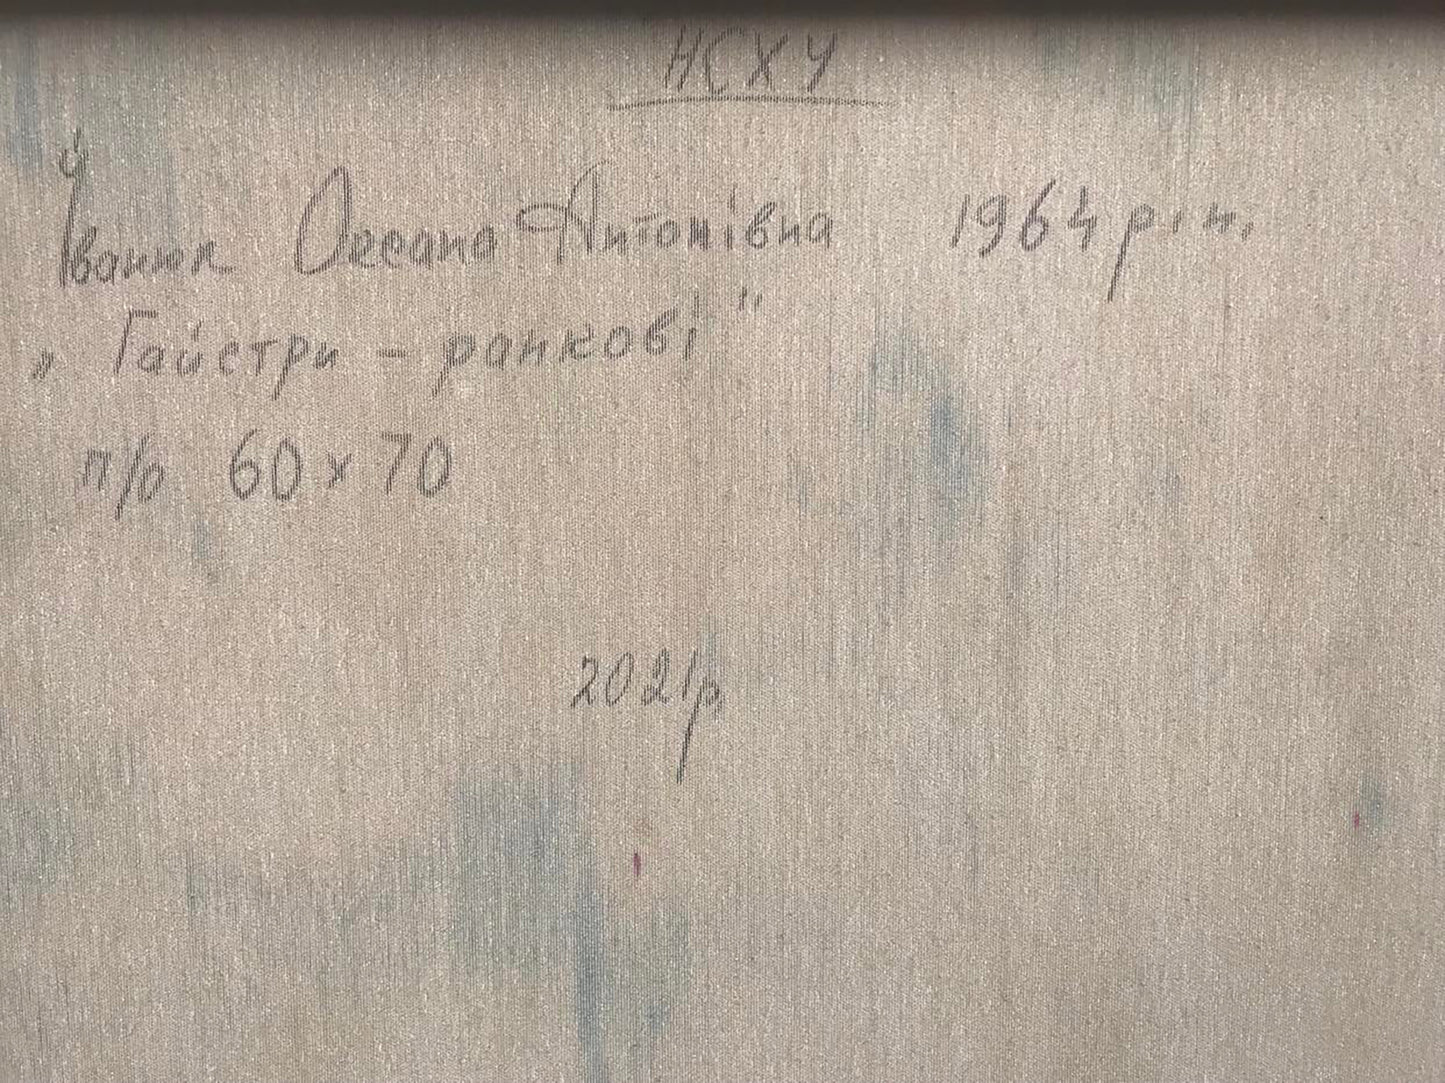 НСХУ
Іванюк Оксана Антонівна 1964 р.н.
„Гайстри - ранкові"
п/о 60 x 70
2021р